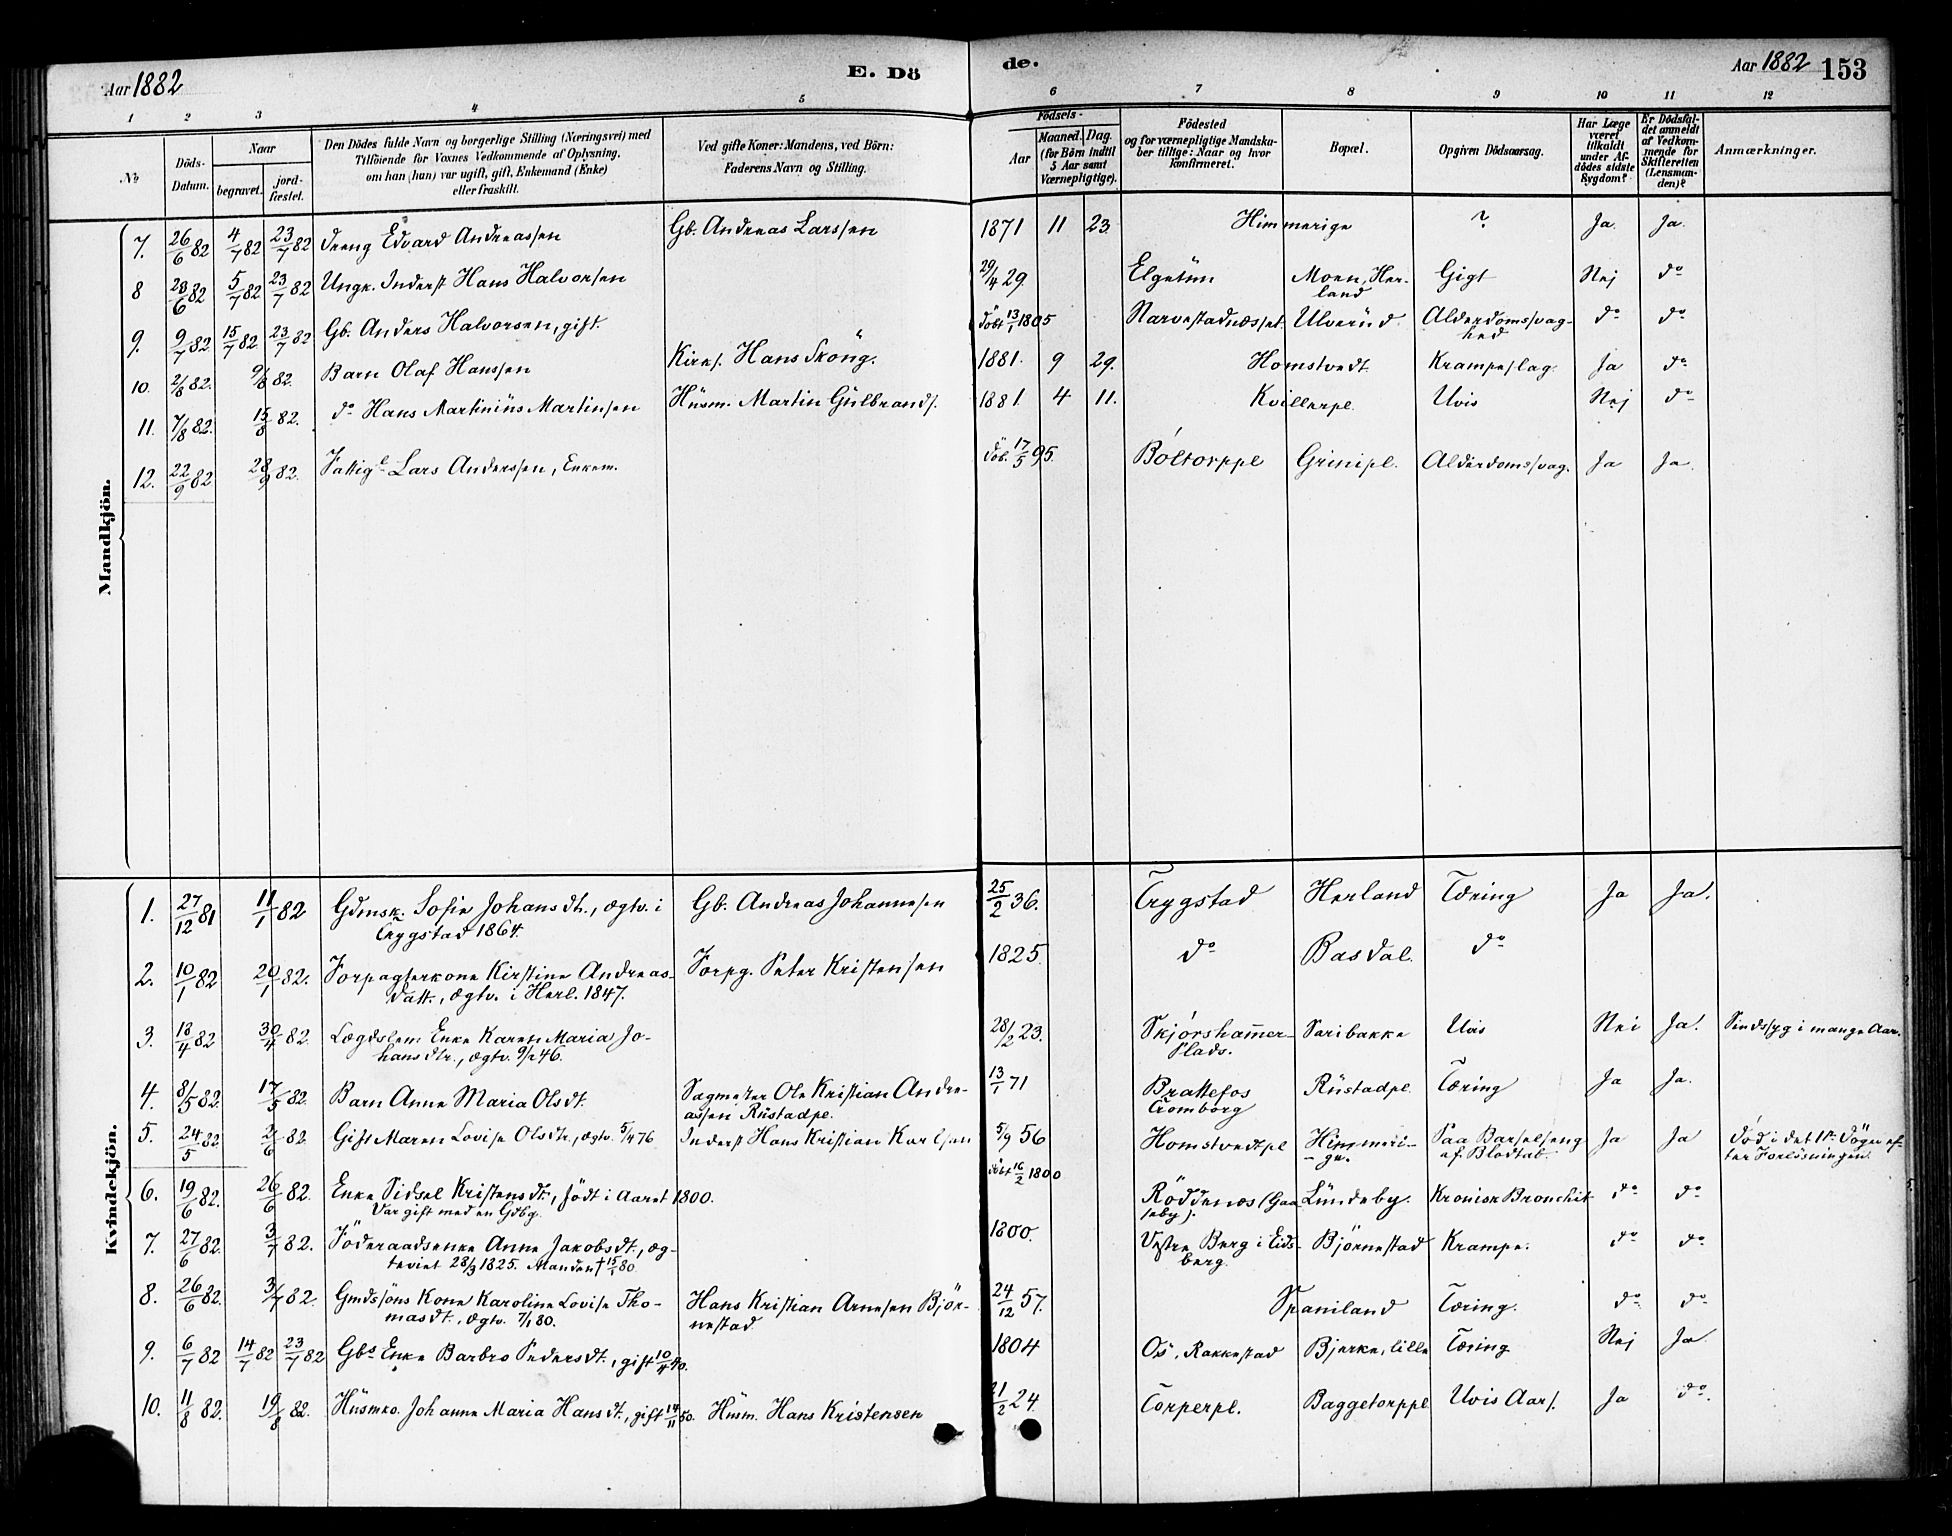 Aar 1882
E. Dö
de.
Aar 1882 153
1 2 3 4 5 6 7 8 9 10 11 12
No
Döds-Datum.
Naar
begravet.
jordfæstet.
Den Dödes fulde Navn og borgerlige Stilling (Næringsvei) med
Tilföiende for Voxnes Vedkommende af Oplysning,
om han (hun) var ugift, gift, Enkemand (Enke)
eller fraskilt.
Ved gifte Koner: Mandens, ved Börn:
Faderens Navn og Stilling.
Födsels-
Aar
Maaned. Dag.
(for Börn indtil
5 Aar samt
Værnepligtige).
Födested
og for værnepligtige Mandska-
ber tillige: Naar og hvor
konfirmeret.
Bopæl.
Opgiven Dödsaarsag.
Har Læge
været
tilkaldt
under Af-
dödes sidste
Sygdom?
Er Dödsfal-
det anmeldt
af Vedkom-
mende for
Skifteretten
(Lensman-
den)?
Anmærkninger.
Mandkjön.
7. 26/6 82 4/7 82 23/7 82 Dreng Edvard Andreassen Gb. Andreas Larssen 1871 11 23 Himmerige ? Ja Ja.
8 28/6 82 5/7 82 23/7 82 Ungk. Inderst Hans Halvorsen 29/4 29. Elgetun Moen, Her-
land Gigt Nej do
9. 9/7 82 15/7 82 23/7 82 Gb. Anders Halvorsen, gift. döbt 13/1 1805 Narvestadnæsset Ulverud Alderdomssvag-
hed do do
10. 2/8 82. 9/8 82. Barn Olaf Hanssen Kirks. Hans Skong. 1881. 9 29. Homstvedt Krampeslag. Ja do
11. 7/8 82. 15/8 82. do Hans Martinius Martinsen Husm. Martin Gulbrands. 1881. 4 11. Kvillerpl. Uvis Nej do
12. 22/9 82 28/9 82. Fattigl. Lars Anderssen, Enkem. döb. 17/5 95. Böltorppl Grinipl. Alderdomssvag. Ja Ja.
Kvindekjön.
1. 27/12 81 11/1 82 Gdmsk. Sofie Johansdtr., ægtv. i
Trygstad 1864. Gb. Andreas Johannesen 25/2 36. Trygstad Herland Tæring Ja Ja.
2. 10/1 82 20/1 82. Forpagterkone Kirstine Andreas-
datt., ægtv. i Herl. 1847. Forpg. Peter Kristensen 1825. do Basdal. do
3. 18/4 82 30/4 82. Lægdslem Enke Karen Maria Jo-
hansdtr., ægtv. 9/2 46. 28/2 23. Skjørshammer-
Plads. Saribakke Uvis Nei Ja. Sindssyg i mange Aar.
4. 8/5 82. 17/5 82. Barn Anne Maria Olsdt. Sagmester Ole Kristian Andre-
assen Rustadpl. 13/1 71 Brattefos
Tromborg Rustadpl. Tæring Ja Ja.
5. 24/5 82 2/6 82. Gift Maren Lovise Olsdtr., ægtv. 5/4 76 Inderst Hans Kristian Karlsen 5/9 56 Homstvedtpl Himmeri-
ge. Paa Barselseng
af Blodtab. Ja Ja Död i det 1ste Dögn ef-
ter Forlösningen.
6. 19/6 82. 26/6 82. Enke Sidsel Kristensdt., födt i Aaret 1800.
Var gift med en Gdbg. döbt 16/2 1800 Röddenæs (Gaa-
seby). Lundeby. Kronisk Bronchit do do
7. 27/6 82. 3/7 82. Föderaadsenke Anne Jakobsdt., æg-
teviet 28/3 1825. Manden † 15/1 80. 1800. Vestre Berg i Eids-
berg. Björnestad Krampe. do do
8. 26/6 82. 3/7 82. Gmdssöns Kone Karoline Lovise Tho-
masdt., ægtv. 7/1 80. Hans Kristian Arnesen Björ-
nestad 24/12 57. Spaniland Tæring. do do
9. 6/7 82 14/7 82 23/7 82 Gbs Enke Barbro Pedersdt., gift 10/4 40. 1804 Os, Rakkestad Bjerke, lille Tæring Nej Ja.
10. 11/8 82. 19/8 82. Husmko. Johanne Maria Hansdt., gift 14/11 50. Husm. Hans Kristensen 21/2 24. Torperpl. Baggetorppl Uvis Aars. Ja do.